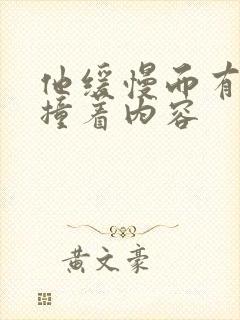 他缓慢而有
撞着内容
黄文豪